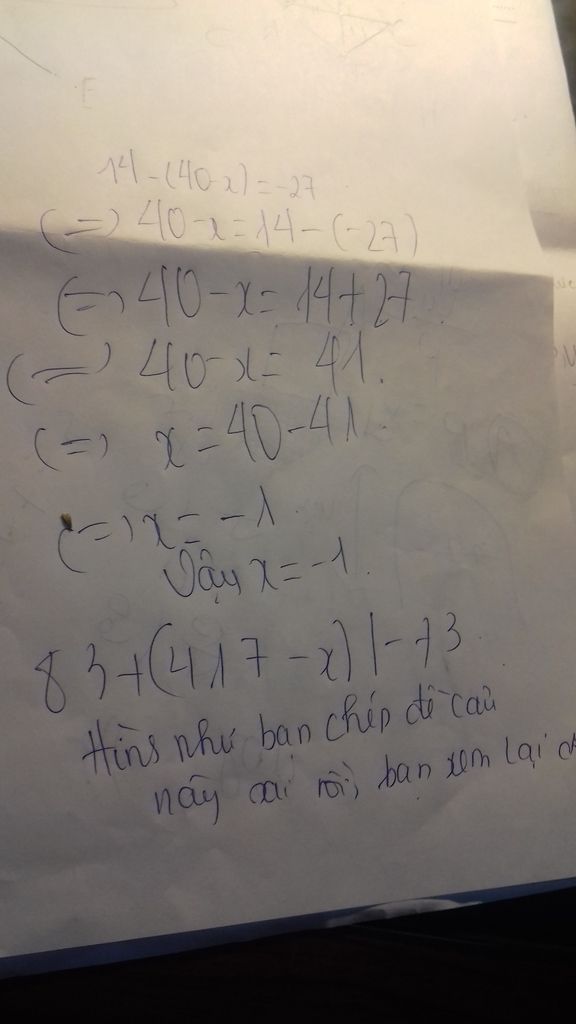 14-(40-x)=-27
(=) 40-x=14-(-27)
(=) 40-x=14+27.
(=) 40-x= 41.
(=) x=40-41.
(=) x= -1.
Vậy x=-1.
83+(417-x) |-73.
Hình như bạn chép đề câu
này sai rồi, bạn xem lại